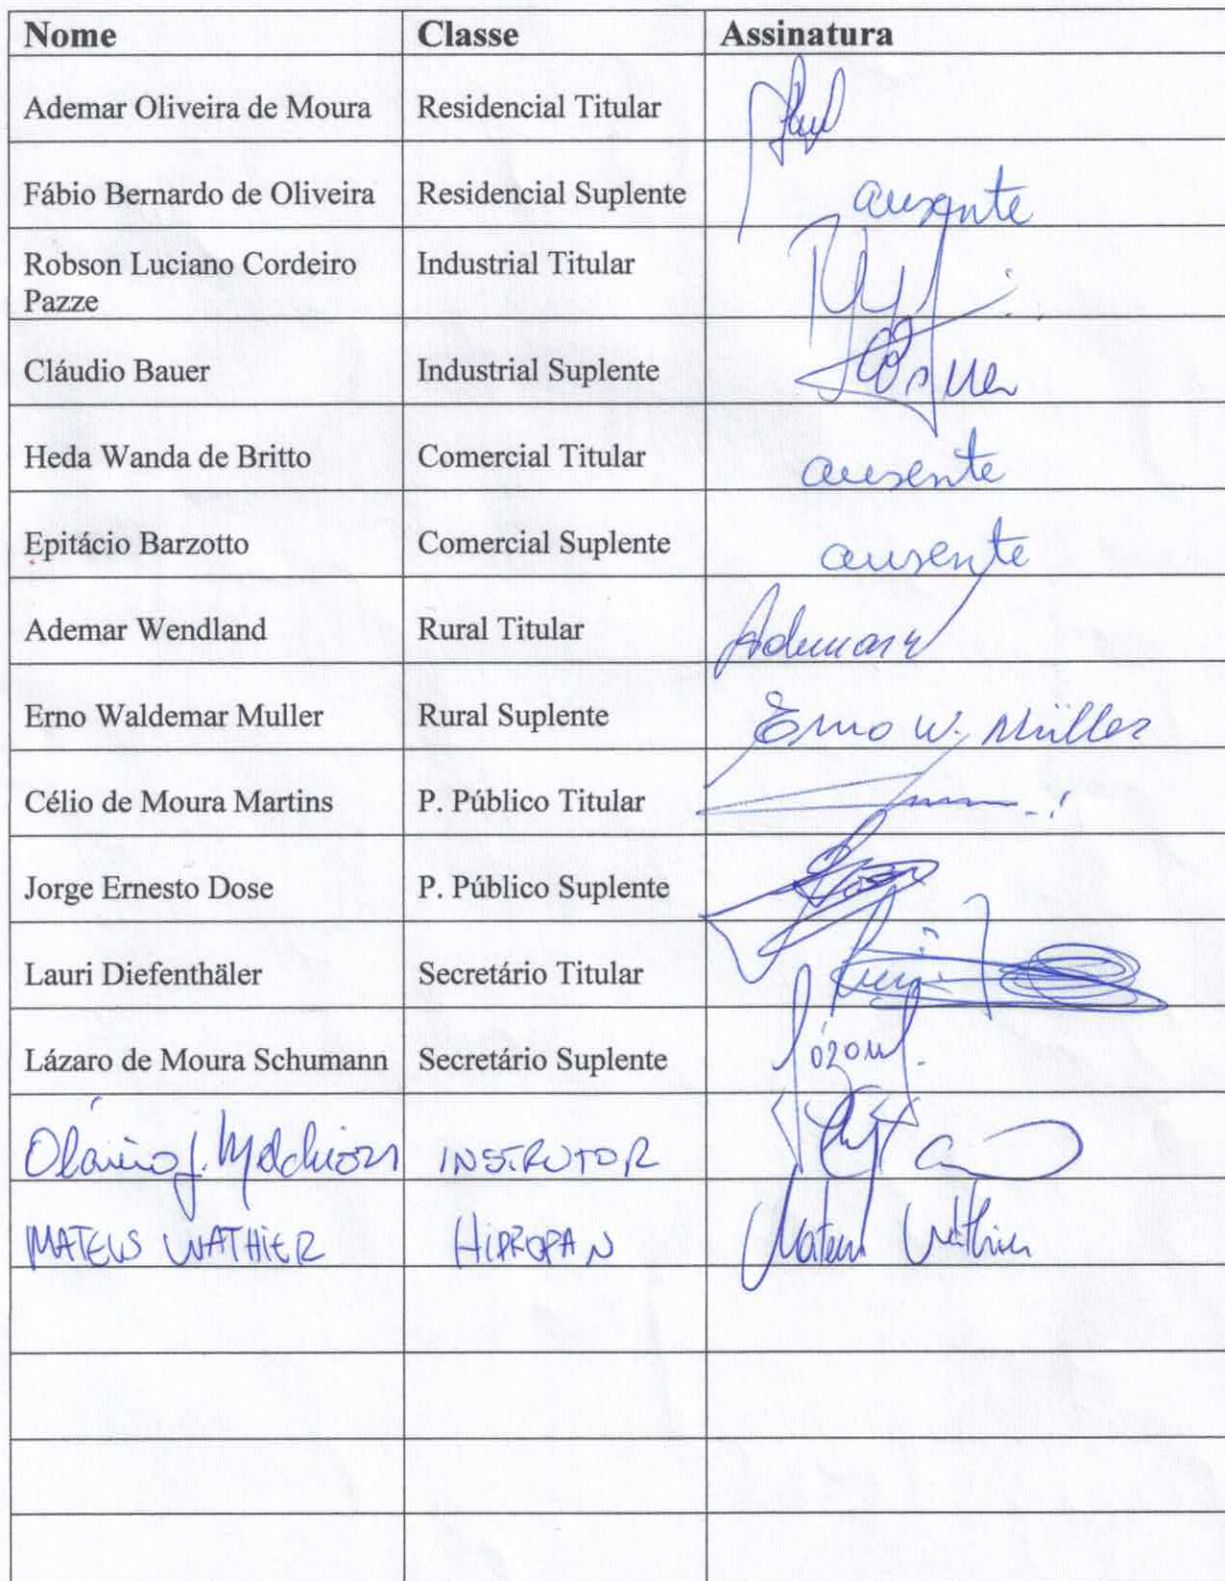 Nome Classe Assinatura
Ademar Oliveira de Moura Residencial Titular
Fábio Bernardo de Oliveira Residencial Suplente ausente
Robson Luciano Cordeiro Industrial Titular
Pazze
Cláudio Bauer Industrial Suplente
Heda Wanda de Britto Comercial Titular ausente
Epitácio Barzotto Comercial Suplente ausente
Ademar Wendland Rural Titular Ademar W
Erno Waldemar Muller Rural Suplente Erno W. Müller
Célio de Moura Martins P. Público Titular
Jorge Ernesto Dose P. Público Suplente
Lauri Diefenthäler Secretário Titular
Lázaro de Moura Schumann Secretário Suplente
INSTRUTOR
MATEUS WATHIER HIDROPAN Mateus Wathier